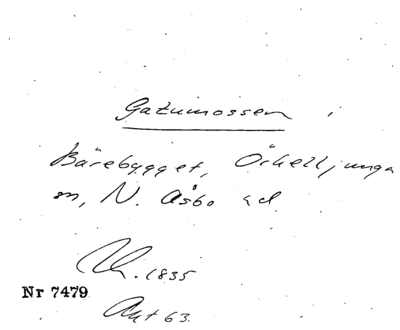 Gatumossen i
Bärebygget, Örkelljunga
sn, N. Åsbo hd
1835
Nr 7479
Akt 63.